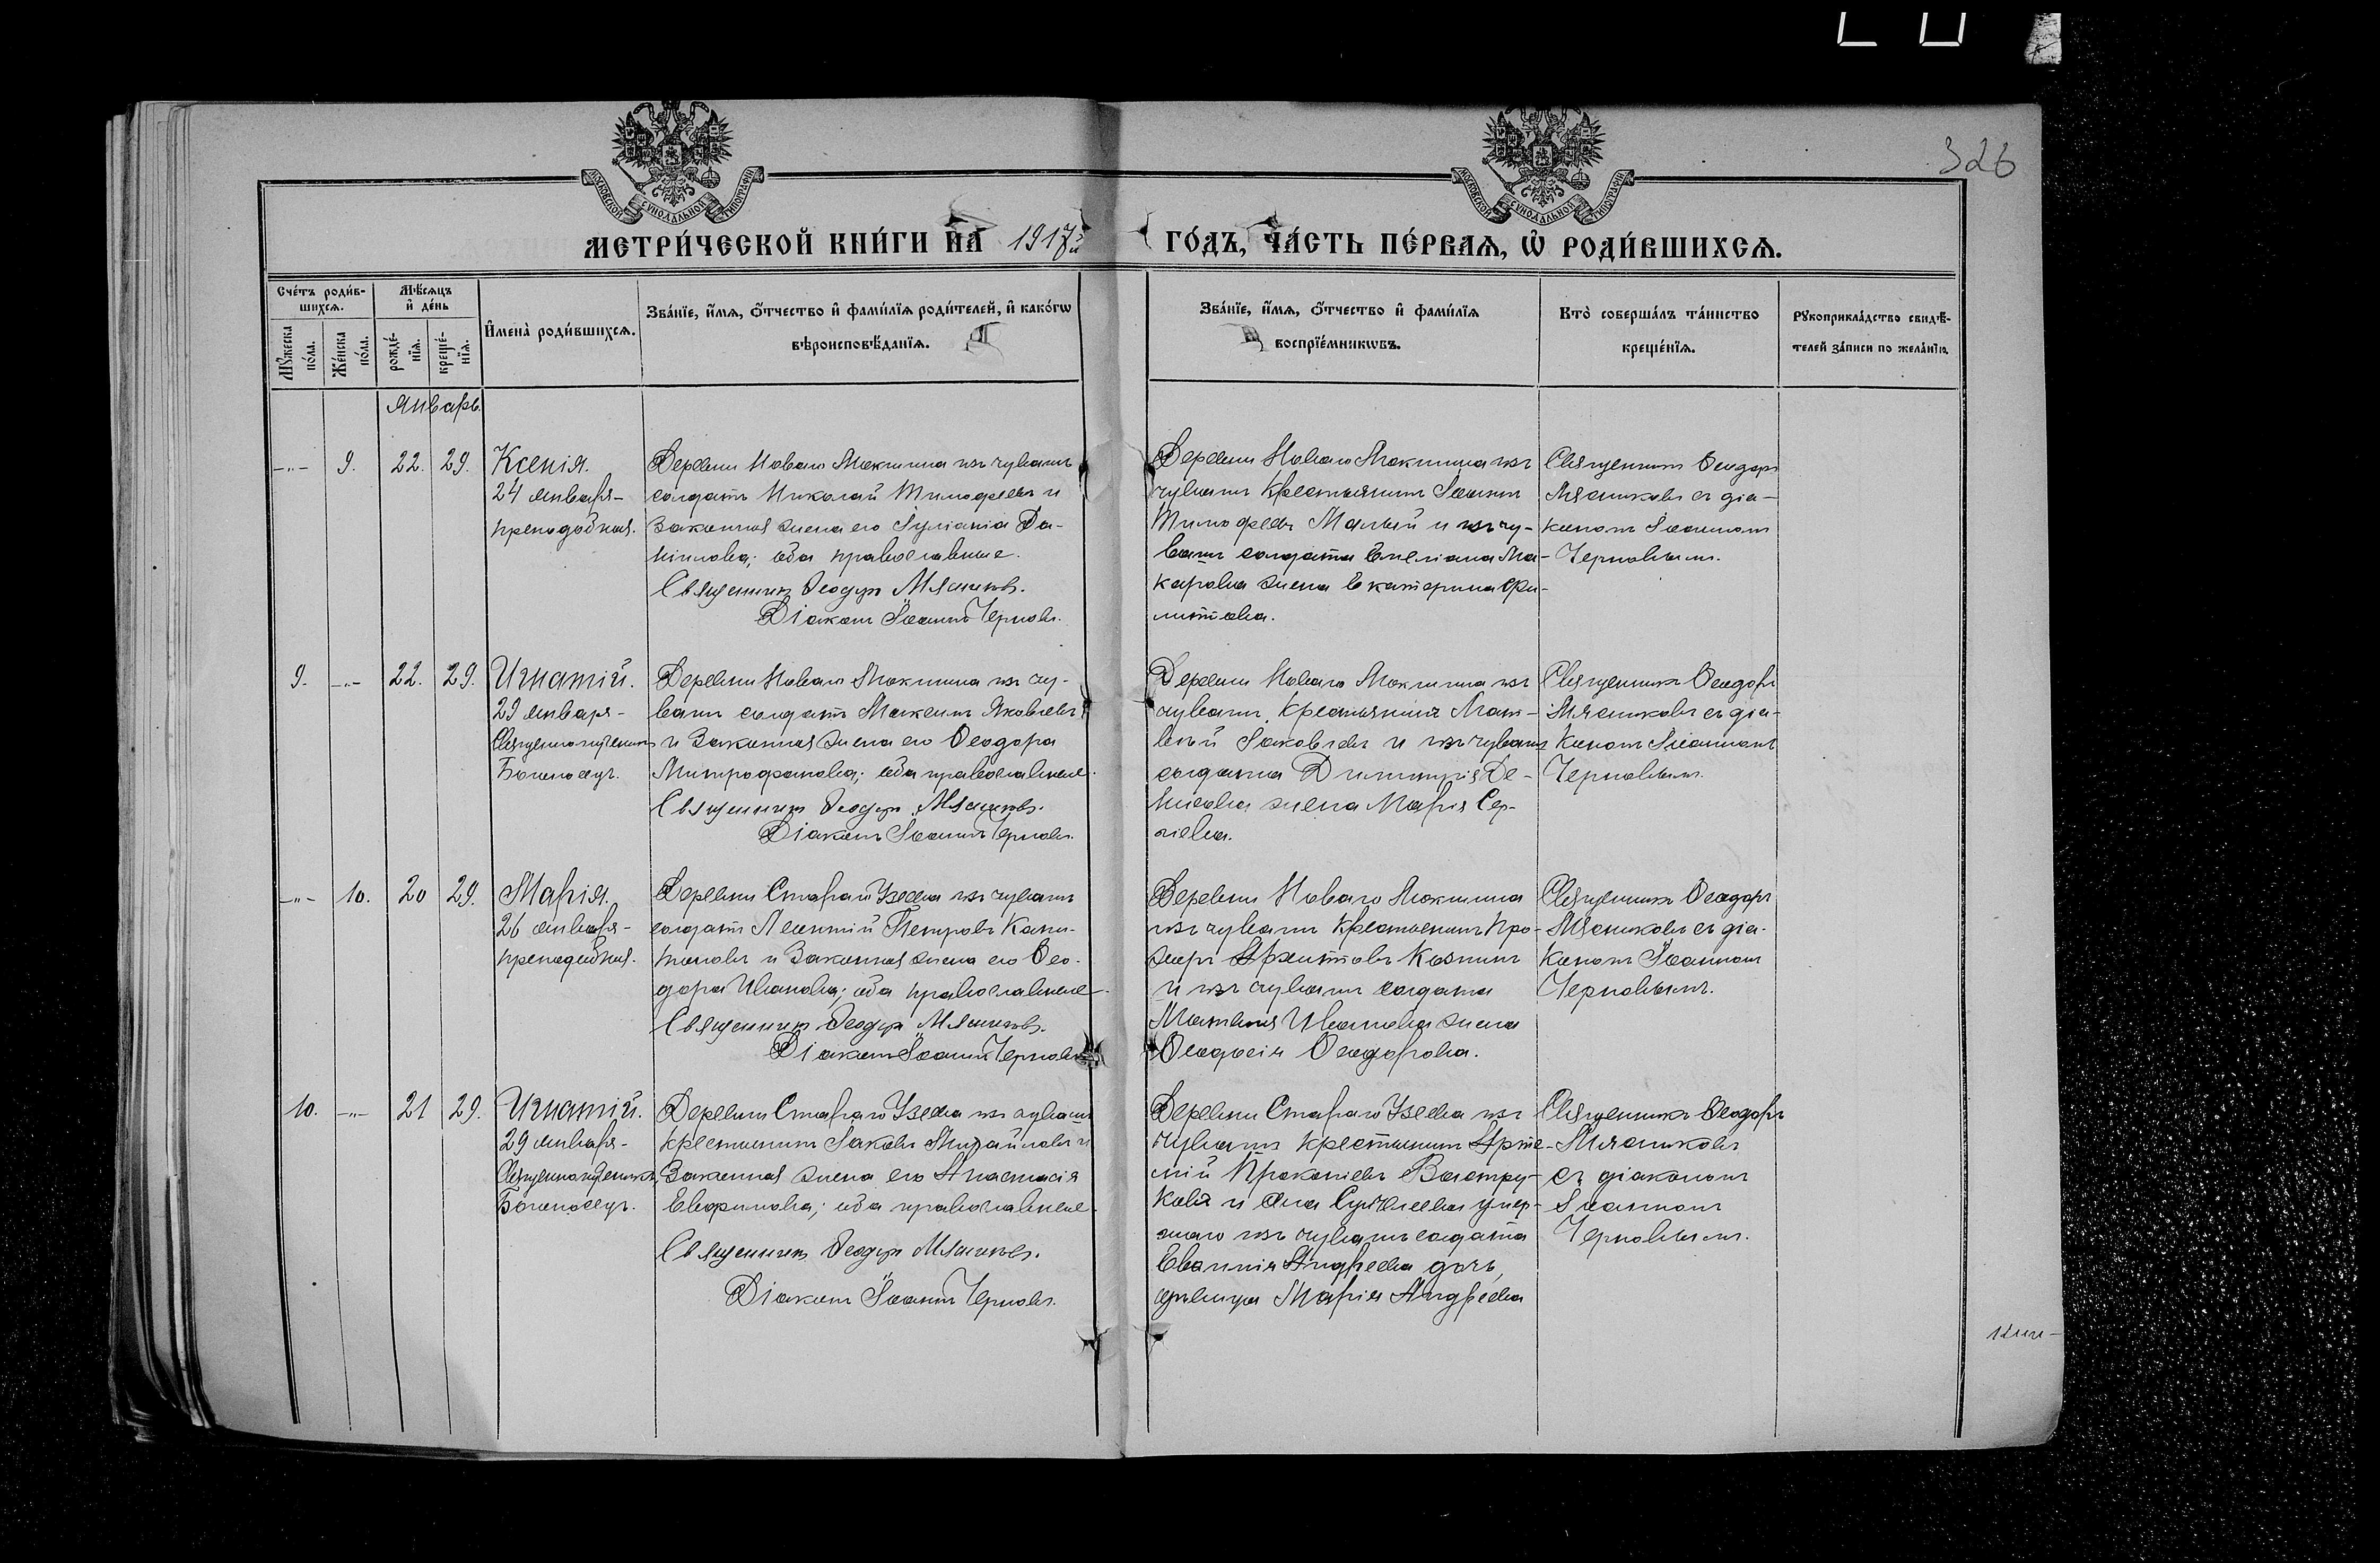 326
МОСКОВСКОЙ СУНОДАЛЬНОЙ ТИПОГРАФІИ
МОСКОВСКОЙ СУНОДАЛЬНОЙ ТИПОГРАФІИ
МЕТРИ́ЧЕСКОЙ КНИ́ГИ НА 1917й ГО́ДЪ, ЧА́СТЬ ПЕ́РВАѦ, Ѡ҆ РОДИ́ВШИХСѦ.
Сче́тъ роди́в-
шихсѧ.
Мѣ́сѧцъ
и҆ де́нь
Мꙋ́жеска
по́ла.
Же́нска
по́ла.
рожде́-
нїѧ.
креще́-
нїѧ.
И҆мена̀ роди́вшихсѧ.
Зва́нїе, и҆́мѧ, ѻ҆́тчество и҆ фами́лїѧ роди́телей, и҆ како́гѡ
вѣроисповѣ́данїѧ.
Зва́нїе, и҆́мѧ, ѻ҆́тчество и҆ фами́лїѧ
воспрїе́мникѡвъ.
Кто̀ соверша́лъ та́инство
креще́нїѧ.
Рꙋкоприкла́дство свидѣ́-
телей за́писи по жела́нїю.
Январь.
-"- 9. 22. 29.
Ксенія.
24 января-
преподобная.
Деревни Новаго Мокшина изъ чувашъ
солдатъ Николай Тимофеевъ и
законная жена его Іуліанія Да-
нилова; оба православные.
Священникъ Ѳеодоръ Мясниковъ.
Діаконъ Іоаннъ Черновъ.
Деревни Новаго Мокшина изъ
чувашъ крестьянинъ Іоаннъ
Тимофеевъ Малый и изъ чу-
вашъ солдата Емеліана Ма-
карова жена Екатерина Фи-
липпова.
Священникъ Ѳеодоръ
Мясниковъ съ діа-
кономъ Іоанномъ
Черновымъ.
9. -"- 22. 29.
Игнатій.
29 января-
Священномученикъ
Богоносецъ.
Деревни Новаго Мокшина изъ чу-
вашъ солдатъ Максимъ Яковлевъ
и законная жена его Ѳеодора
Митрофанова; оба православные.
Священникъ Ѳеодоръ Мясниковъ.
Діаконъ Іоаннъ Черновъ.
Деревни Новаго Мокшина изъ
чувашъ крестьянинъ Мат-
вѣй Іаковлевъ и изъ чувашъ
солдата Димитрія Де-
нисова жена Марія Сер-
гіева.
Священникъ Ѳеодоръ
Мясниковъ съ діа-
кономъ Іоанномъ
Черновымъ.
-"- 10. 20 29.
Марія.
26 января-
преподобная.
Деревни Стараго Узеева изъ чувашъ
солдатъ Леонтій Петровъ Капи-
тоновъ и законная жена его Ѳео-
дора Иванова; оба православные.
Священникъ Ѳеодоръ Мясниковъ.
Діаконъ Іоаннъ Черновъ
Деревни Новаго Мокшина
изъ чувашъ крестьянинъ Про-
хоръ Архиповъ Козминъ
и изъ чувашъ солдата
Матвея Иванова жена
Ѳеодосія Ѳеодорова.
Священникъ Ѳеодоръ
Мясниковъ съ діа-
кономъ Іоанномъ
Черновымъ.
10. -"- 21 29.
Игнатій.
29 января-
Священномученикъ
Богоносецъ.
Деревни Стараго Узеева изъ чувашъ
крестьянинъ Іаковъ Михайловъ и
законная жена его Анастасія
Евфимова; оба православные.
Священникъ Ѳеодоръ Мясниковъ.
Діаконъ Іоаннъ Черновъ.
Деревни Стараго Узеева изъ
чувашъ крестьянинъ Арте-
мій Прокопіевъ Вастру-
ковъ и села умер-
шаго изъ чувашъ солдата
Андреева дочь,
девица Марія Андреева
Священникъ Ѳеодоръ
Мясниковъ
съ діакономъ
Іоанномъ
Черновымъ.